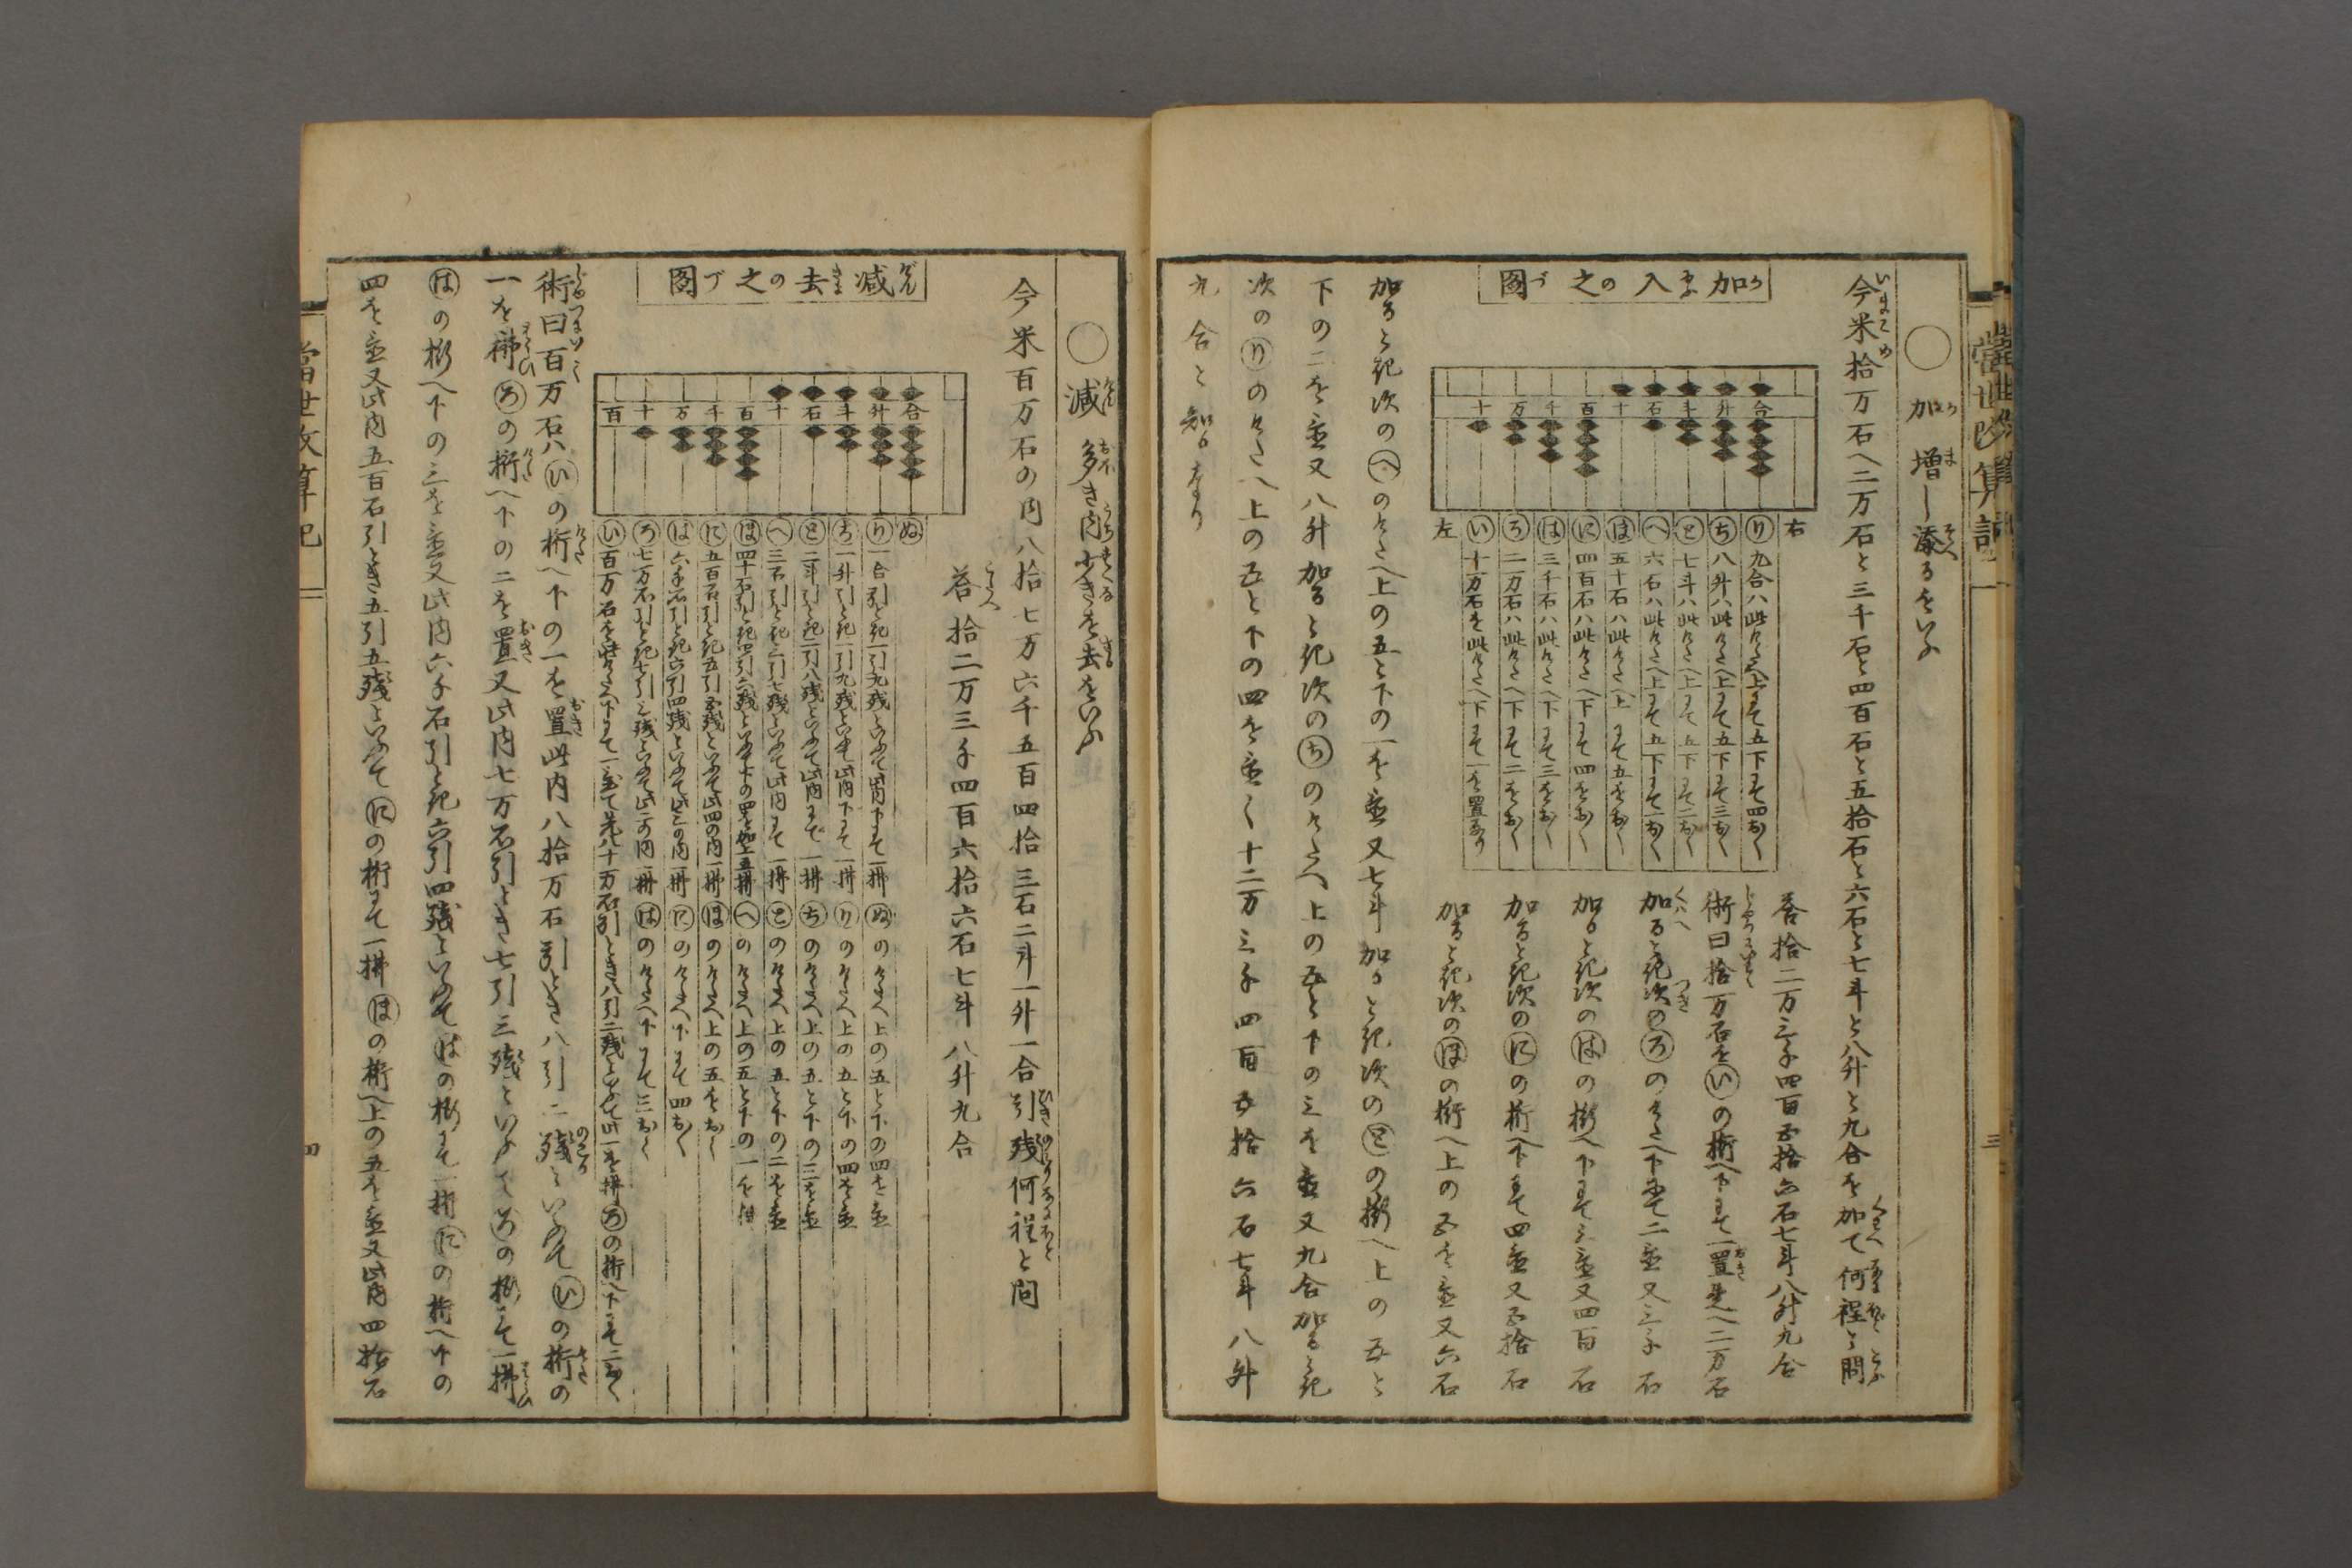 ○ 加 増し添るをいふ
今米拾万石へ二万石と三千石と四百石と五拾石と六石と七斗と八升と九合を加て何程と問
加入之図
加入の之図
合 升 斗 石 十 百 千 万 十
右
り 九合ハ此けたへ上にて五下にて四おく
ち 八升ハ此けたへ上にて五下にて三おく
と 七斗ハ此けたへ上にて五下にて二おく
へ 六石ハ此けたへ上にて五下にて一おく
ほ 五十石ハ此けたへ上にて五をおく
に 四百石ハ此けたへ下にて四をおく
は 三千石ハ此けたへ下にて三をおく
ろ 二万石ハ此けたへ下にて二をおく
い 十万石を此けたへ下にて一を置なり
左
答拾二万三千四百五拾六石七斗八升九合
術曰拾万石をいの桁へ下にて一置是へ二万石
加ると記次のろのけたへ下にて二並又三千石
加ると記次のはの桁へ下にて三並又四百石
加ると記次のにの桁へ下にて四並又五拾石
加ると記次のほの桁へ上の五を並又六石
加ると記次のへのけたへ上の五と下の一を並又七斗加ると記次のとの桁へ上の五と
下の二を並又八升加ると記次のちのけたへ上の五と下の三を並又九合加ると記
次のりのけたへ上の五と下の四を並く十二万三千四百五拾六石七斗八升
九合と知るなり
當世改算記
三
○ 減 多き内少きを去をいふ
今米百万石の内八拾七万六千五百四拾三石二斗一升一合引残何程と問
答拾二万三千四百五拾六石七斗八升九合
減去の之図
合 升 斗 石 十 百 千 万 十 百
ぬ
り 一合引と記一引九残といふて此内下にて一拂ぬのけたへ上の五と下の四を並
ち 一升引と記一引九残といふて此内下にて一拂りのけたへ上の五と下の四を並
と 二斗引と記二引八残といふて此内にて一拂ちのけたへ上の五と下の三を並
へ 三石引と記三引七残といふて此内にて一拂とのけたへ上の五と下の二を並
ほ 四十石引と記四引六残といふて下の四を加上五拂へのけたへ上の五と下の一を並
に 五百石引と記五引五残といふて此四の内一拂ほのけたへ上の五をおく
は 六千石引と記六引四残といふて此三の内一拂にのけたへ下にて四おく
ろ 七万石引と記七引三残といふて此二の内一拂はのけたへ下にて三おく
い 百万石を此けたへ下にて一置て先八十万石引とき八引二残といふて此一を拂ろの桁へ下にて二おく
術曰百万石ハいの桁へ下の一を置此内八拾万石引とき八引二残といふていの桁の
一を拂ろの桁へ下の二を置又此内七万石引とき七引三残といふてろの桁にて一拂
はの桁へ下の三を並又此内六千石引と記六引四残といふてはの桁にて一拂にの桁へ下の
四を並又此内五百石引とき五引五残といふてにの桁にて一拂ほの桁へ上の五を並又此内四拾石
當世改算記
四